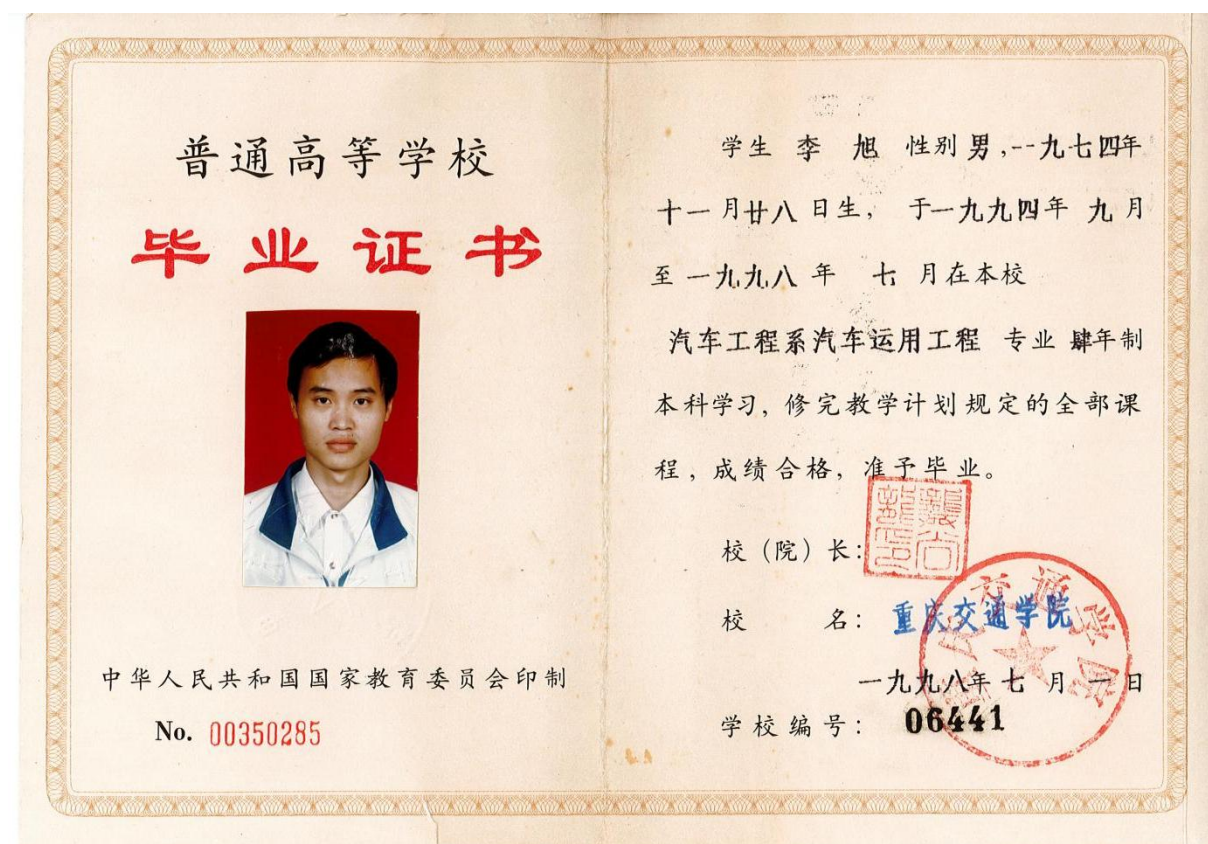 普通高等学校
毕业证书
中华人民共和国国家教育委员会印制
No. 00350285
学生 李 旭 性别 男,一九七四年
十一月廿八日生, 于一九九四年 九月
至 一九九八 年 七 月在本校
汽车工程系汽车运用工程 专业 肆年制
本科学习, 修完教学计划规定的全部课
程, 成绩合格, 准予毕业。
校（院）长:
校 名: 重庆交通学院
一九九八年 七 月 一 日
学校编号: 06441
重庆交通学院